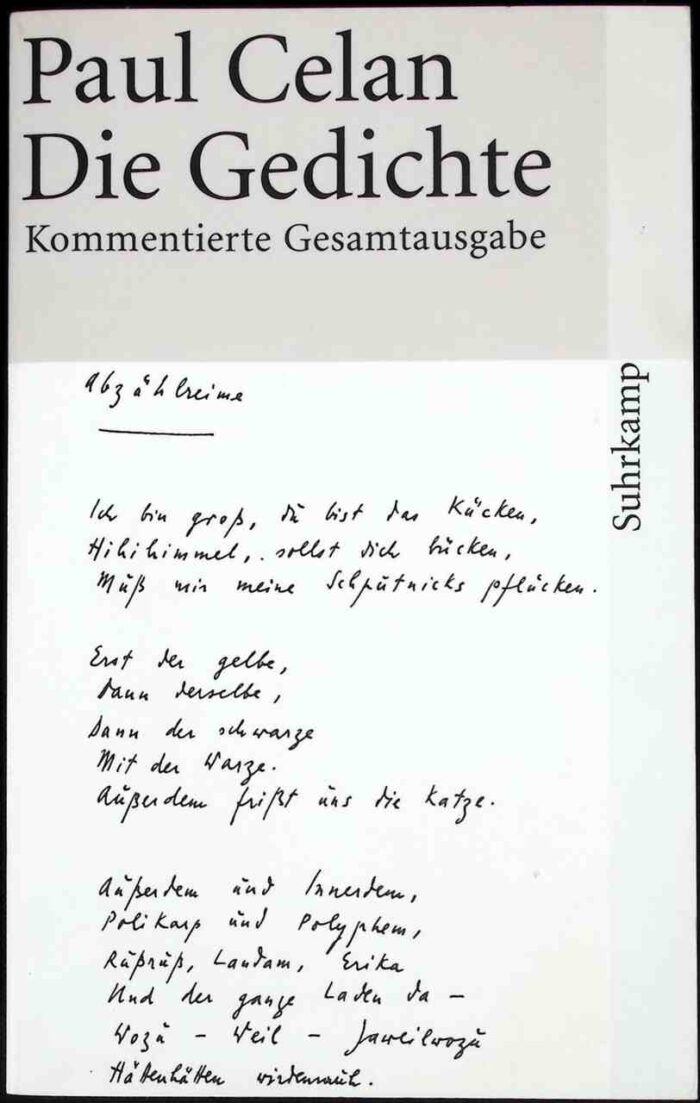 Paul Celan
Die Gedichte
Kommentierte Gesamtausgabe
Suhrkamp
Abzählreime
Ich bin groß, du bist das Kücken,
Hihihimmel, sollst dich bücken,
Muß mir meine Schputnicks pflücken.
Erst der gelbe,
Dann derselbe,
Dann der schwarze
Mit der Warze.
Außerdem frißt uns die Katze.
Außerdem und Innerdem,
Polikarp und Polyphem,
Rußruß, Landam, Erika
Und der ganze Laden da –
Wozu – Weil – Jaweilwozu
Hättenhätten wirdennauh.